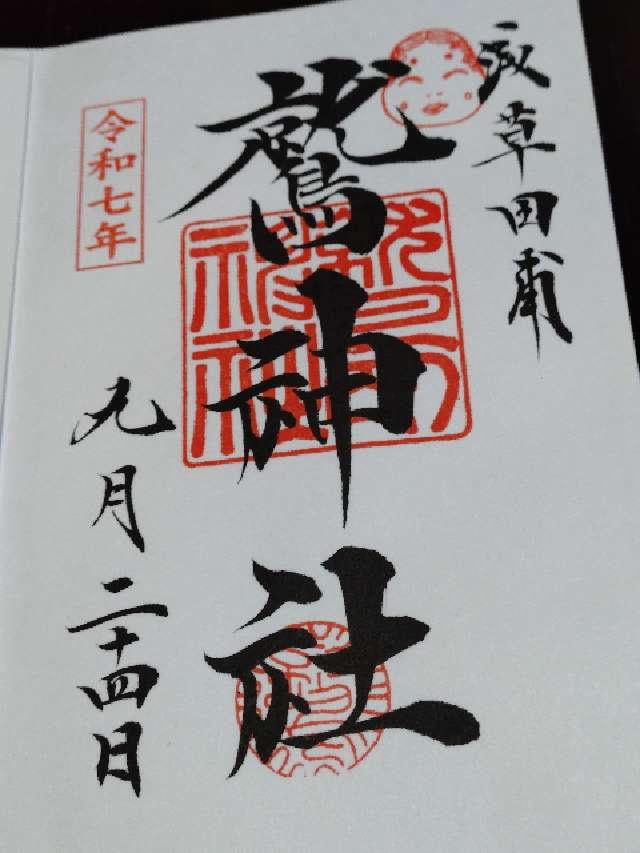 浅草田甫
鷲神社
令和七年
九月二十四日